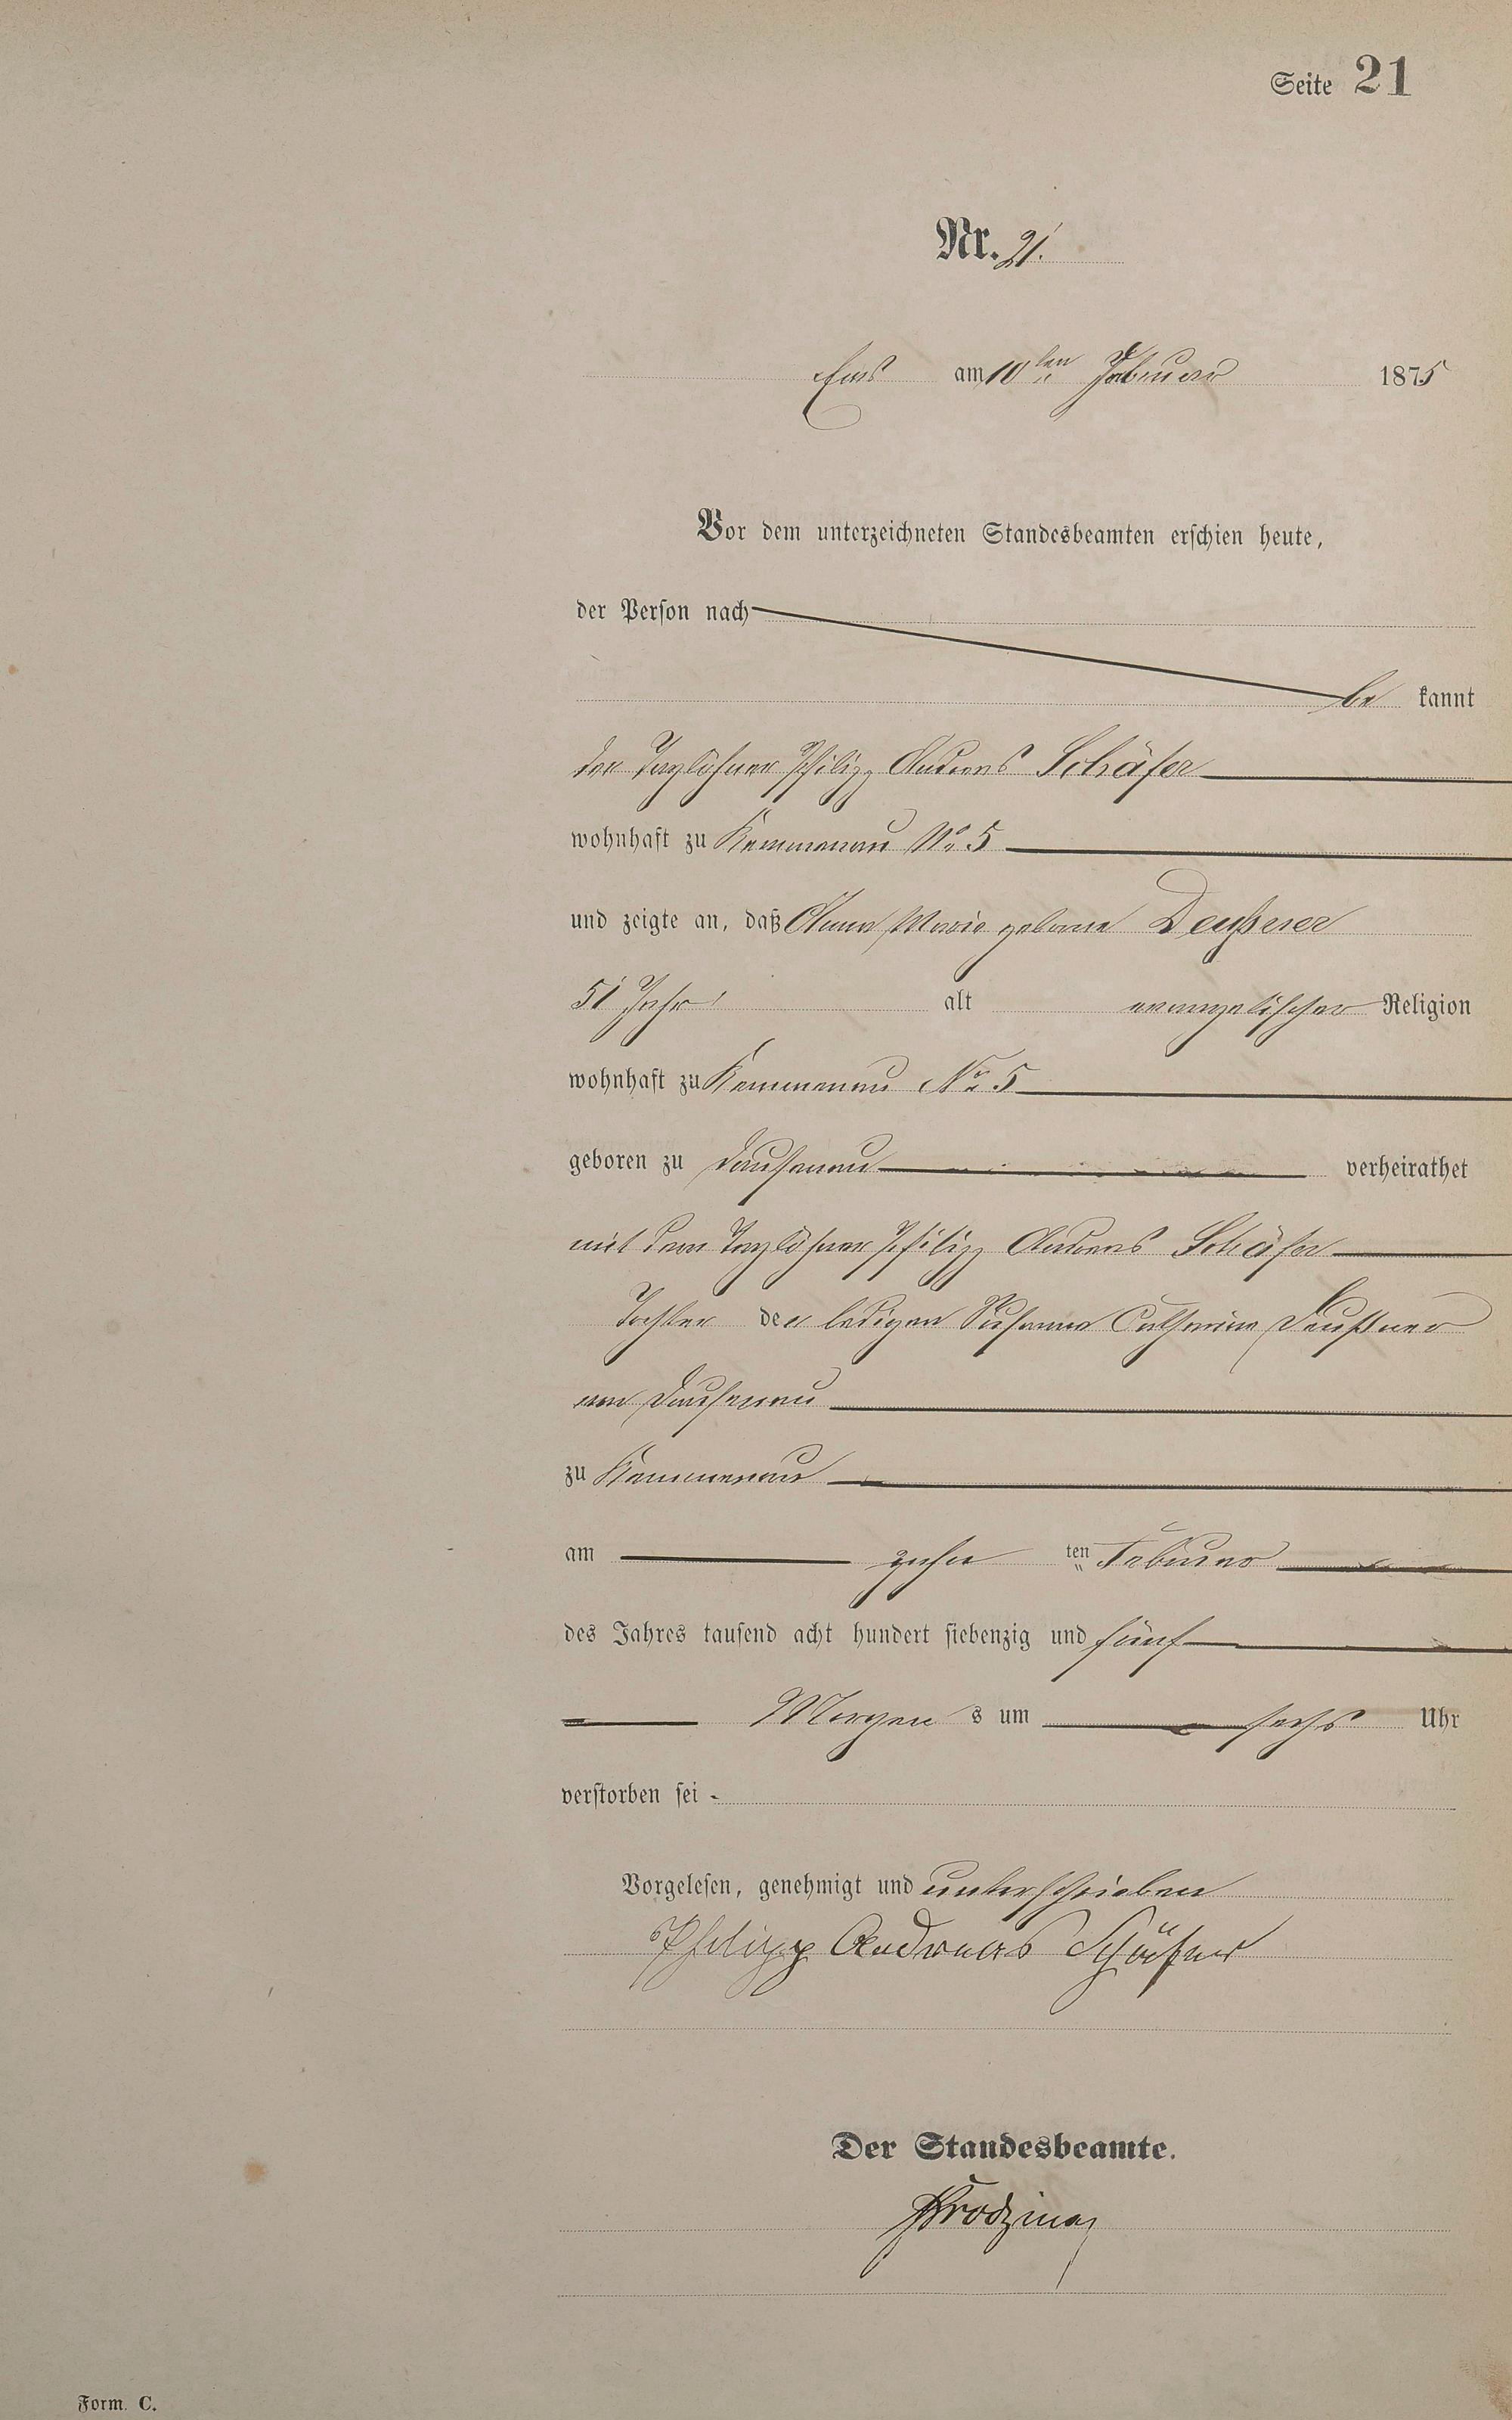 Seite 21
Nr. 21.
Ems am 10ten Februar 1875
Vor dem unterzeichneten Standesbeamten erschien heute,
der Person nach
be kannt
der Taglöhner Philipp Andreas Schäfer
wohnhaft zu Kemmenau No 5
und zeigte an, daß Anna Marie geborne Deußner
51 Jahr alt evangelischer Religion
wohnhaft zu Kemmenau No 5
geboren zu Dausenau verheirathet
mit dem Taglöhner Philipp Andreas Schäfer
Tochter der ledigen Susanna Catharina Deußner
von Dausenau
zu Kemmenau
am zehn ten Februar
des Jahres tausend acht hundert siebenzig und fünf
Morgen s um sechs Uhr
verstorben sei -
Vorgelesen, genehmigt und unterschrieben
Philipp Andreas Schäfer
Der Standesbeamte.
Form. C.